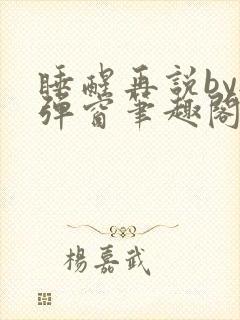 睡醒再说by
弹窗笔趣阁
杨嘉武